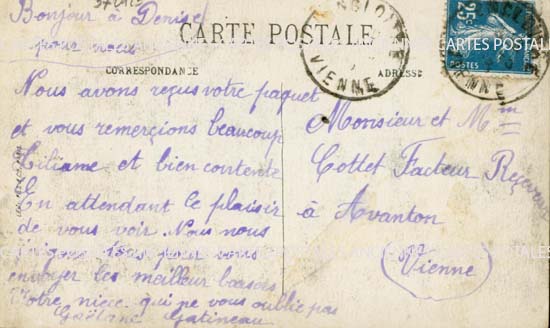 Bonjour à Denise
pour nous
CARTE POSTALE
CORRESPONDANCE
ADRESSE
VIENNE
25c
POSTES
CARTES POSTALES
Nous avons reçus votre paquet
et vous remerçions beaucoup
Liliame et bien contente
En attendant le plaisir
de vous voir. Nous nous
tous pour vous
envoyer les meilleur baisers
Votre niece qui ne vous oublie pas
Gatineau
Monsieur et Mm
Cottet Facteur Receveur
à Avanton
Vienne